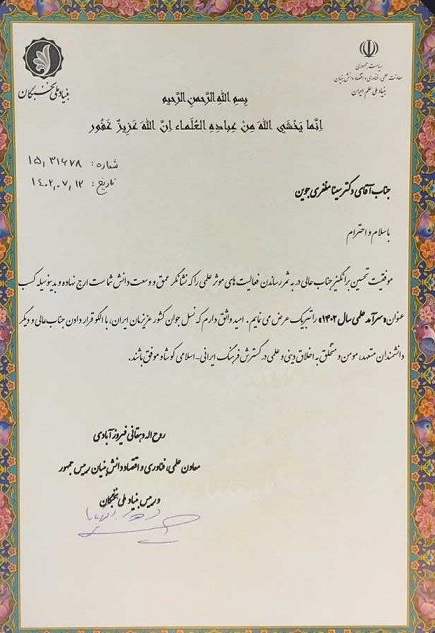 ریاست جمهوری
معاونت علمی، فناوری و اقتصاد دانش بنیان
بنیاد ملی علم ایران
بنیاد ملی نخبگان
بِسمِ اللهِ الرَّحمنِ الرَّحیمِ
اِنَّما یَخشَی اللهَ مِن عِبادِهِ العُلَماء اِنَّ اللهَ عَزیزٌ غَفُور
شماره : ۱۵٫۳۱۶۷۸
تاریخ : ۱۴۰۲٫۰۷٫۱۲
جناب آقای دکتر سینا مظفری جوین
با سلام و احترام
موفقیت تحسین برانگیز جناب عالی در به ثمر رساندن فعالیت های موثر علمی را که نشانگر عمق و وسعت دانش شماست ارج نهاده و بدینوسیله کسب
عنوان «سرآمد علمی سال ۱۴۰۲» را تبریک عرض می نمایم. امید واثق دارم که نسل جوان کشور عزیزمان ایران، با الگو قرار دادن جناب عالی و دیگر
دانشمندان متعهد، مومن و متخلق به اخلاق دینی و علمی در گسترش فرهنگ ایرانی-اسلامی کوشا و موفق باشند.
روح اله دهقانی فیروزآبادی
معاون علمی، فناوری و اقتصاد دانش بنیان رییس جمهور
و رییس بنیاد ملی نخبگان